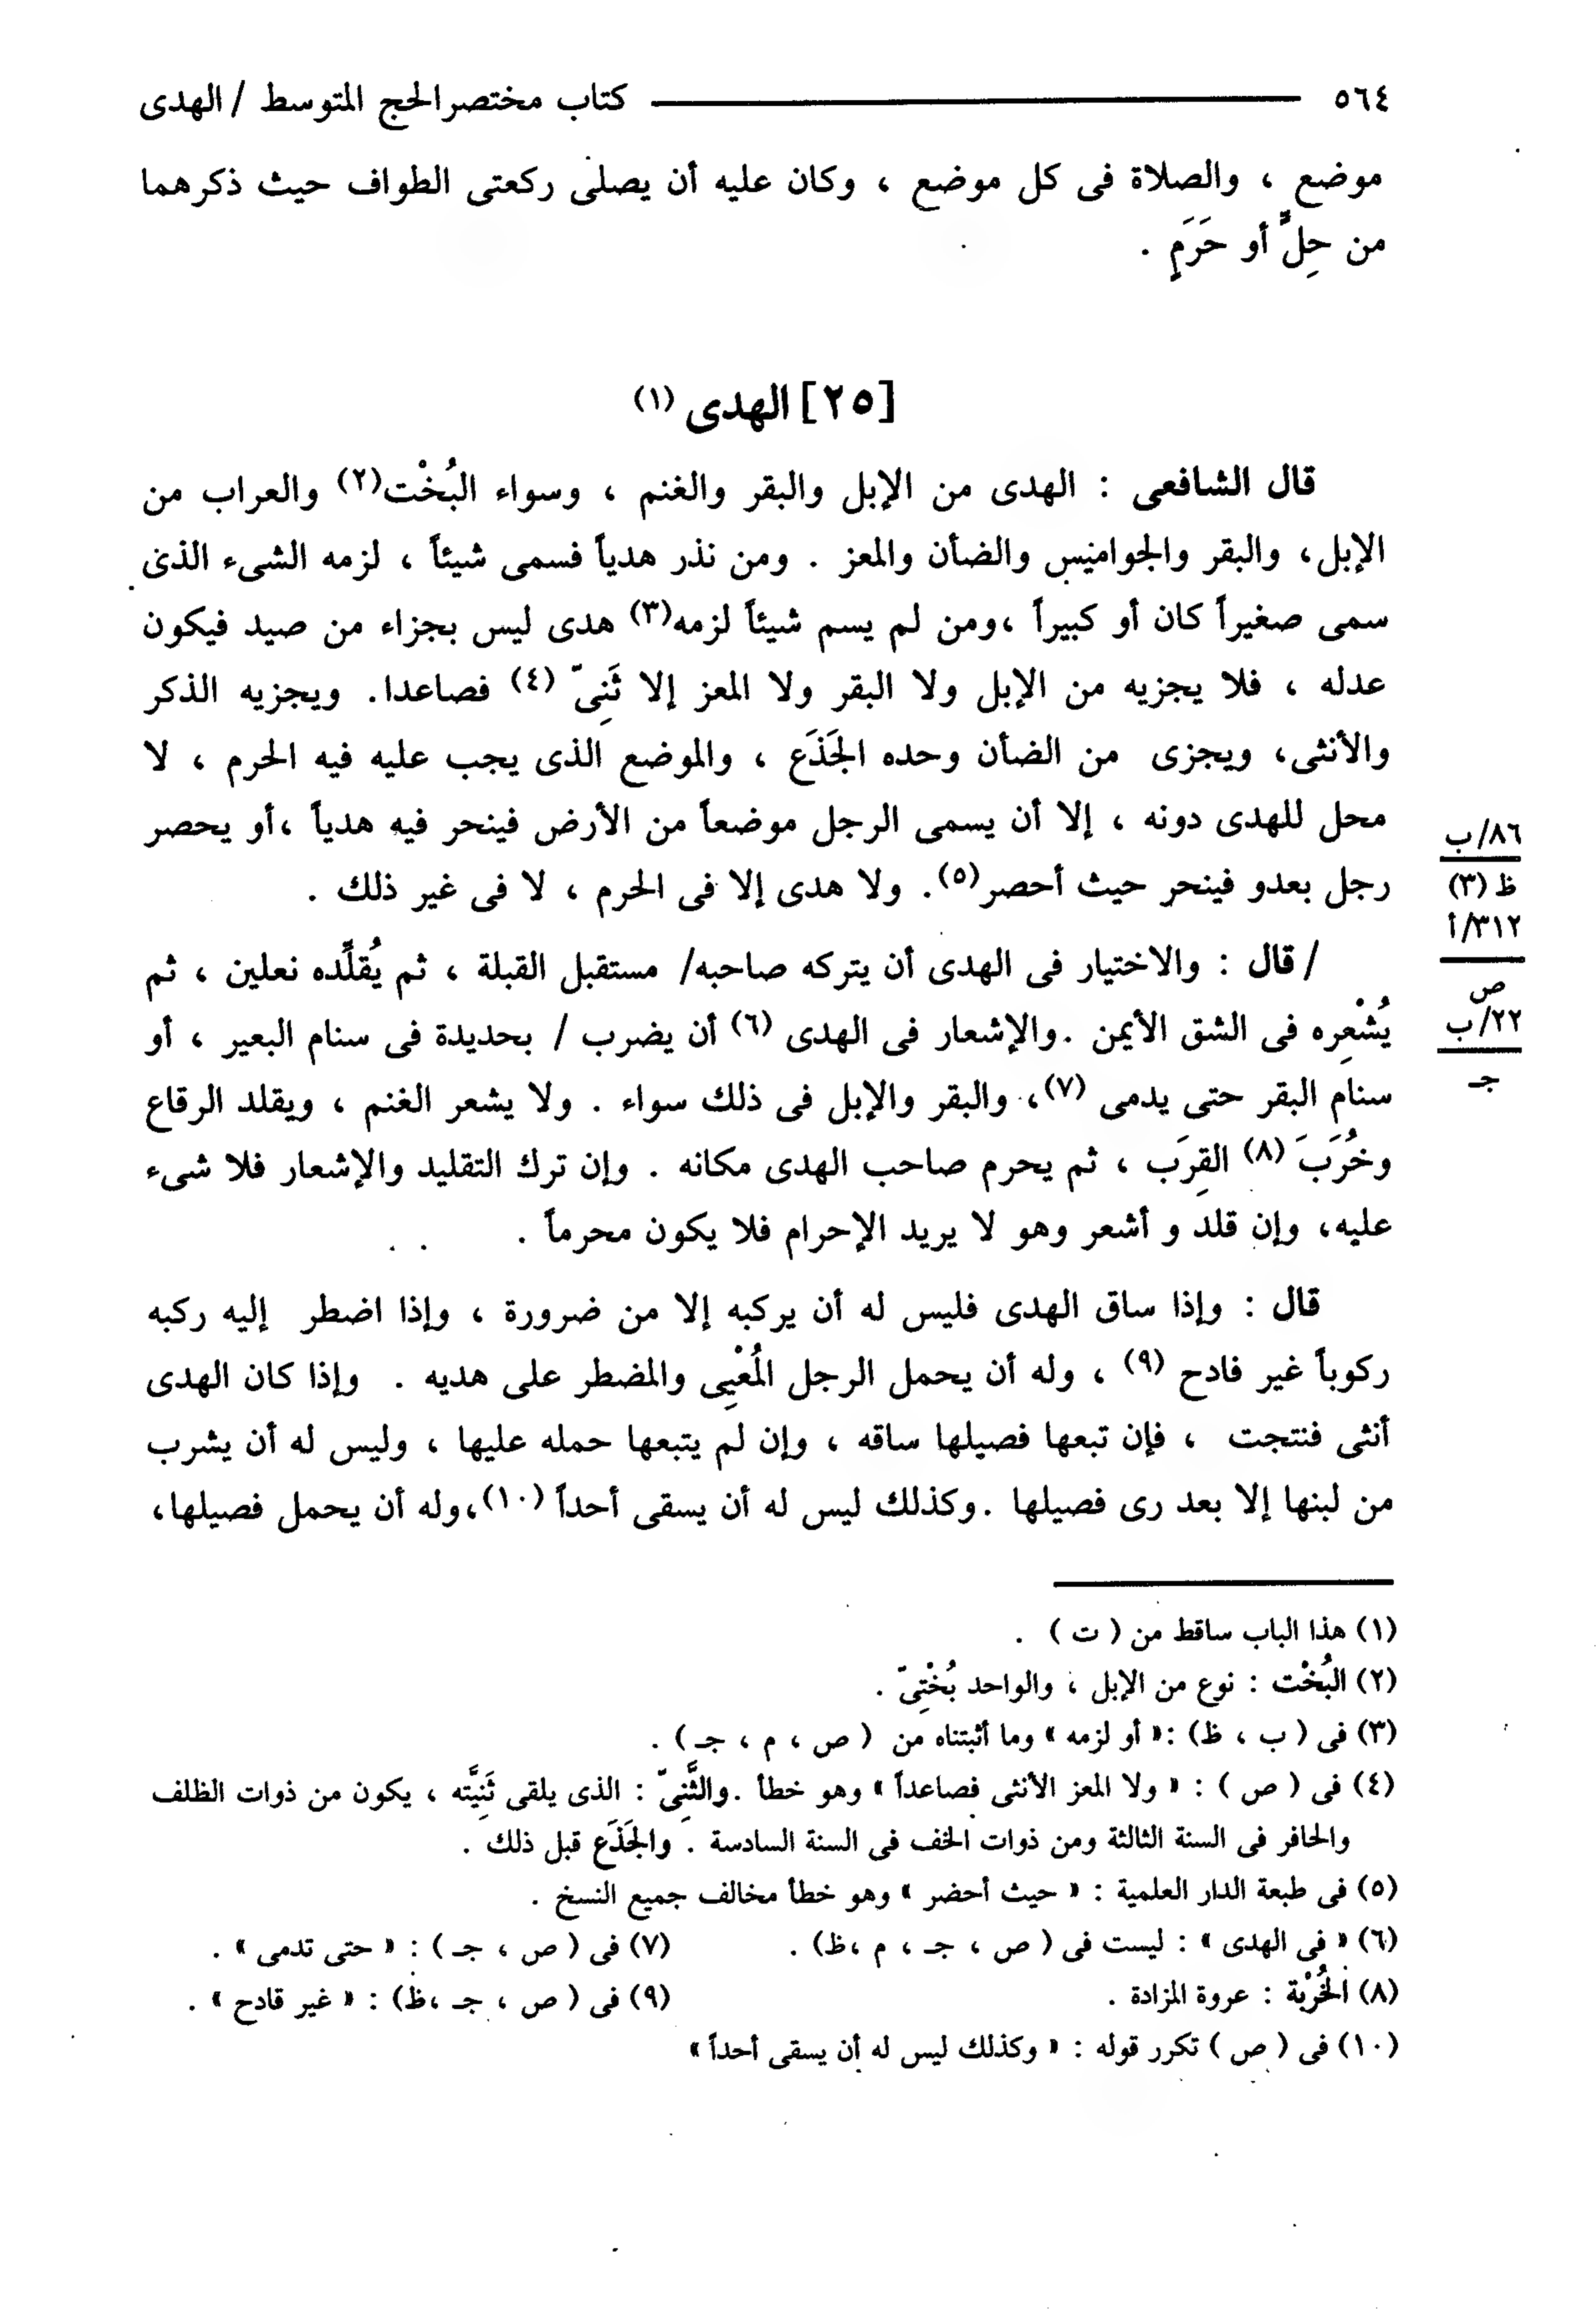 ٥٦٤ ــــــــــــــ كتاب مختصر الحج المتوسط / الهدى
موضع ، والصلاة فى كل موضع ، وكان عليه أن يصلى ركعتى الطواف حيث ذكرهما
من حِلٍّ أو حَرَمٍ .
[٢٥] الهدى (١)
قال الشافعى : الهدى من الإبل والبقر والغنم ، وسواء البُخْت(٢) والعراب من
الإبل، والبقر والجواميس والضأن والمعز . ومن نذر هدياً فسمى شيئاً ، لزمه الشىء الذى
سمى صغيراً كان أو كبيراً ،ومن لم يسم شيئاً لزمه(٣) هدى ليس بجزاء من صيد فيكون
عدله ، فلا يجزيه من الإبل ولا البقر ولا المعز إلا ثَنِىّ (٤) فصاعدا. ويجزيه الذكر
والأنثى، ويجزى من الضأن وحده الجَذَع ، والموضع الذى يجب عليه فيه الحرم ، لا
محل للهدى دونه ، إلا أن يسمى الرجل موضعاً من الأرض فينحر فيه هدياً ،أو يحصر
رجل بعدو فينحر حيث أحصر(٥). ولا هدى إلا فى الحرم ، لا فى غير ذلك .
/ قال : والاختيار فى الهدى أن يتركه صاحبه/ مستقبل القبلة ، ثم يُقلِّده نعلين ، ثم
يُشْعِره فى الشق الأيمن .والإشعار فى الهدى (٦) أن يضرب / بحديدة فى سنام البعير ، أو
سنام البقر حتى يدمى (٧)، والبقر والإبل فى ذلك سواء . ولا يشعر الغنم ، ويقلد الرقاع
وخُرَبَ (٨) القِرَب ، ثم يحرم صاحب الهدى مكانه . وإن ترك التقليد والإشعار فلا شىء
عليه، وإن قلد و أشعر وهو لا يريد الإحرام فلا يكون محرماً .
قال : وإذا ساق الهدى فليس له أن يركبه إلا من ضرورة ، وإذا اضطر إليه ركبه
ركوباً غير فادح (٩) ، وله أن يحمل الرجل المُعْيِى والمضطر على هديه . وإذا كان الهدى
أنثى فنتجت ، فإن تبعها فصيلها ساقه ، وإن لم يتبعها حمله عليها ، وليس له أن يشرب
من لبنها إلا بعد رى فصيلها .وكذلك ليس له أن يسقى أحداً (١٠)،وله أن يحمل فصيلها،
٨٦/ب
ظ (٣)
٣١٢/أ
ص
٢٢/ب
جـ
(١) هذا الباب ساقط من ( ت ) .
(٢) البُخْت : نوع من الإبل ، والواحد بُخْتِىّ .
(٣) فى ( ب ، ظ) :« أو لزمه » وما أثبتناه من ( ص ، م ، جـ ) .
(٤) فى ( ص ) : « ولا المعز الأنثى فصاعداً » وهو خطأ .والثَّنِىّ : الذى يلقى ثَنِيَّته ، يكون من ذوات الظلف
والحافر فى السنة الثالثة ومن ذوات الخف فى السنة السادسة . والجَذَع قبل ذلك .
(٥) فى طبعة الدار العلمية : « حيث أحضر » وهو خطأ مخالف جميع النسخ .
(٦) « فى الهدى » : ليست فى ( ص ، جـ ، م ،ظ) . (٧) فى ( ص ، جـ ) : « حتى تدمى » .
(٨) الخُرْبة : عروة المزادة . (٩) فى ( ص ، جـ ،ظ) : « غير قادح » .
(١٠) فى ( ص ) تكرر قوله : « وكذلك ليس له أن يسقى أحداً »